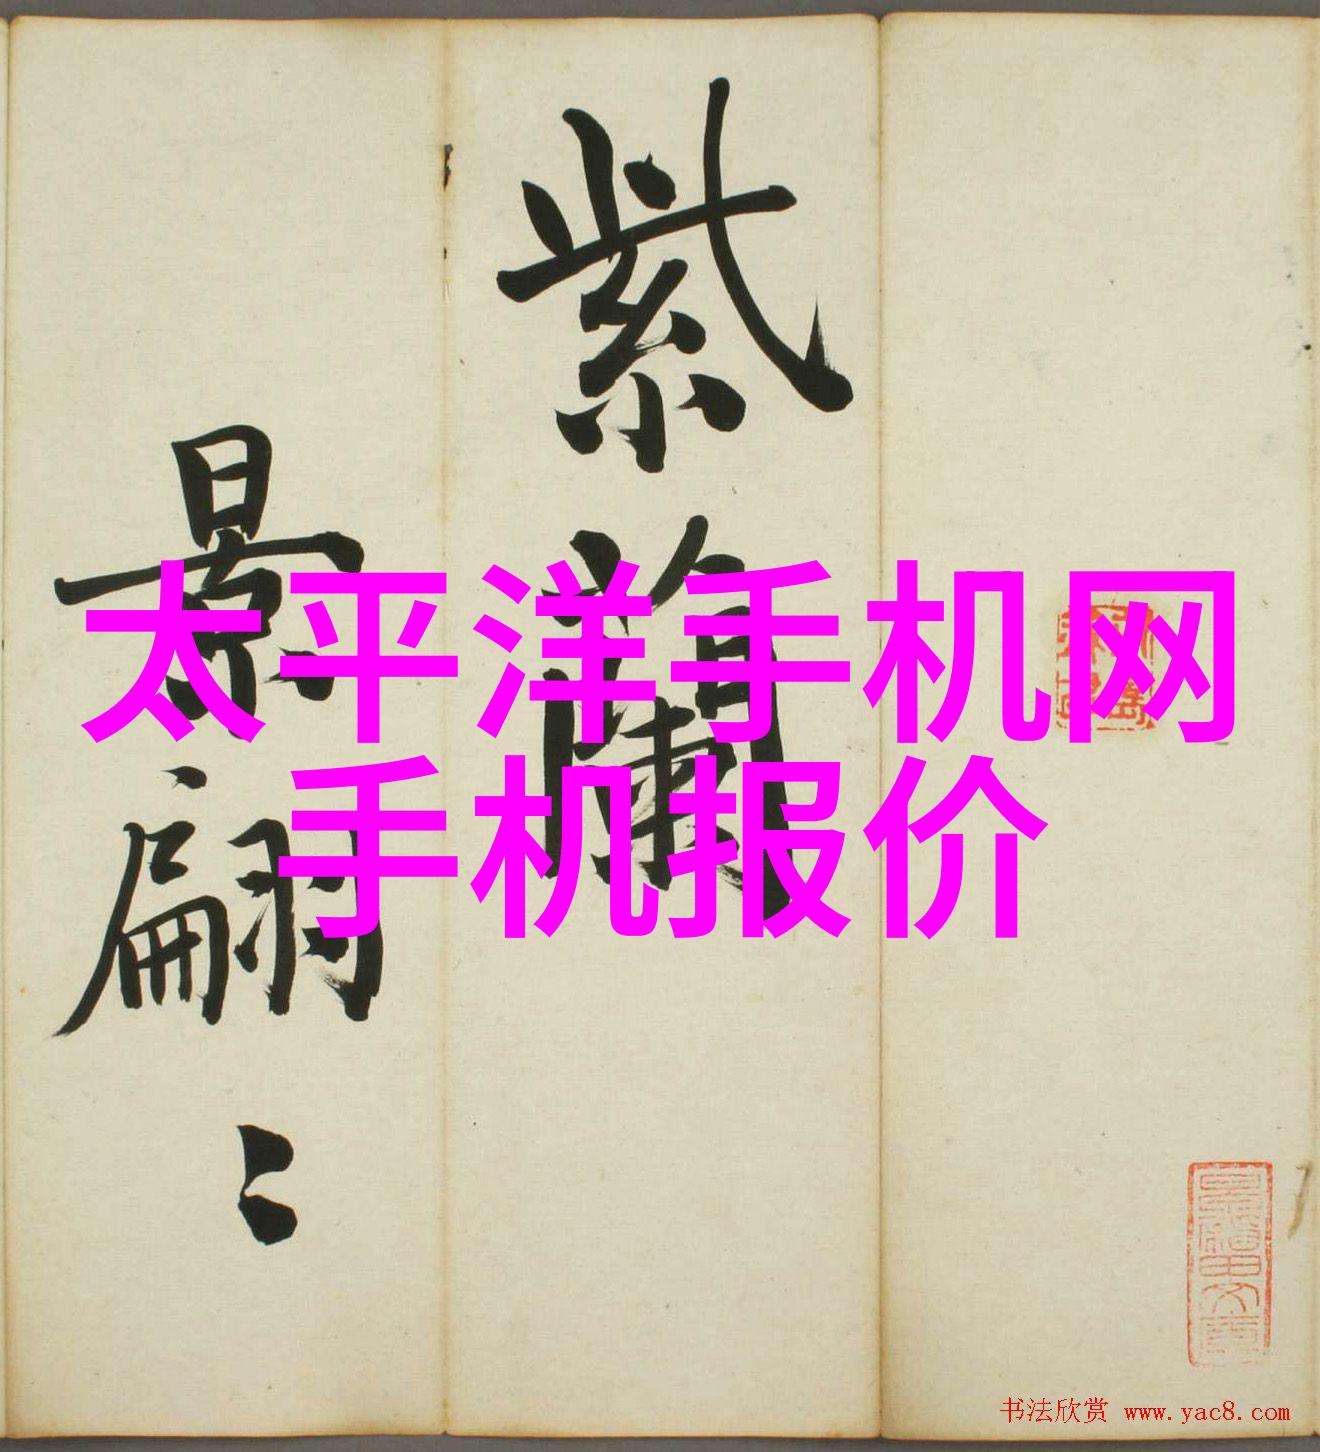 紫蘭
景翩〻
太平洋手机网
手机报价
书法欣赏 www.yac8.com